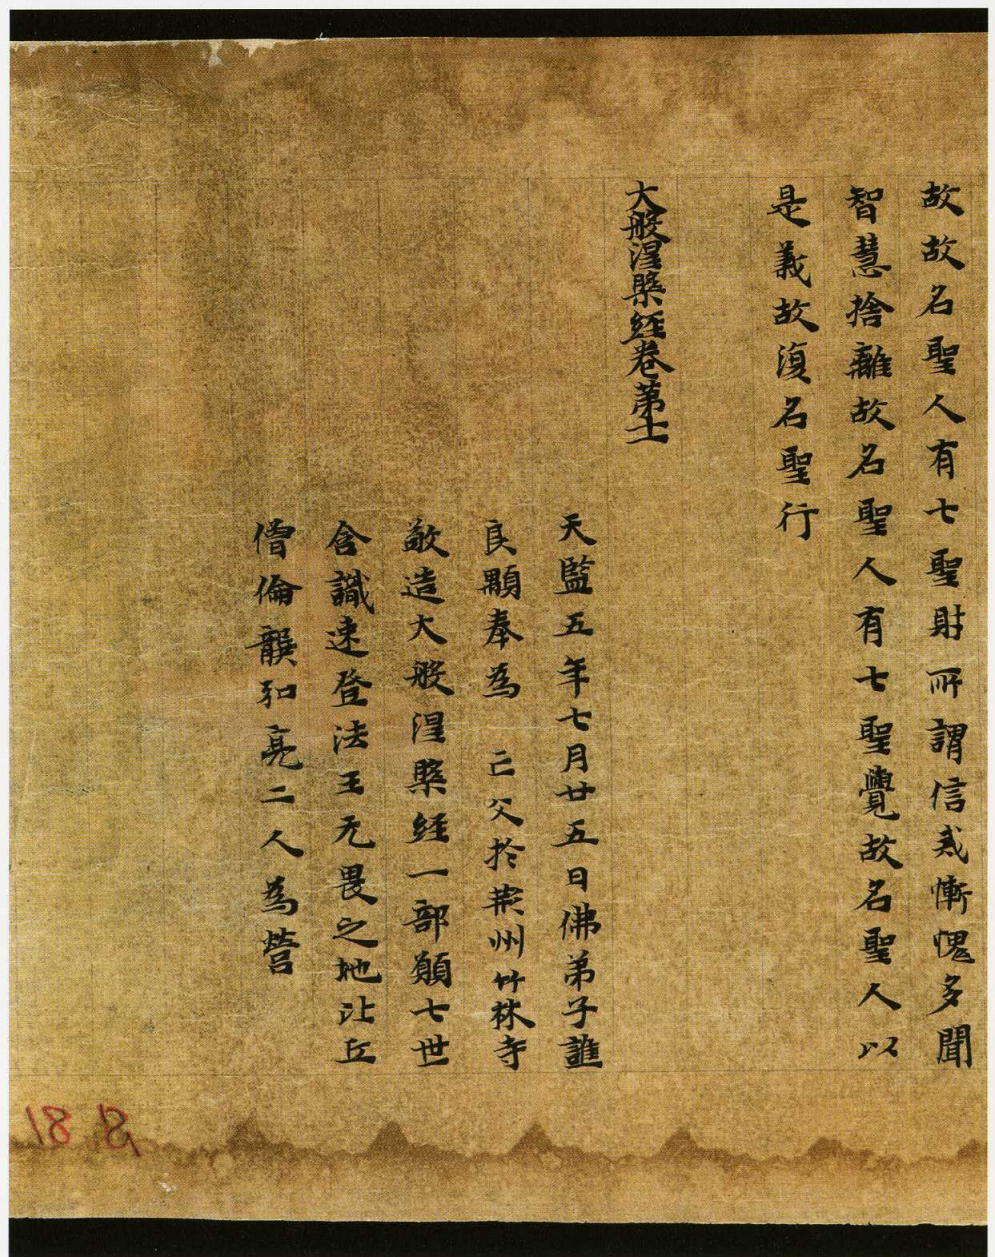 故故名聖人有七聖財所謂信戒慚愧多聞
智慧捨離故名聖人有七聖覺故名聖人以
是義故復名聖行
大般涅槃經卷第十一
天監五年七月廿五日佛弟子譙
良顒奉為 亡父於荊州竹林寺
敬造大般涅槃經一部願七世
含識速登法王无畏之地比丘
僧倫龔和亮二人為營
81 81